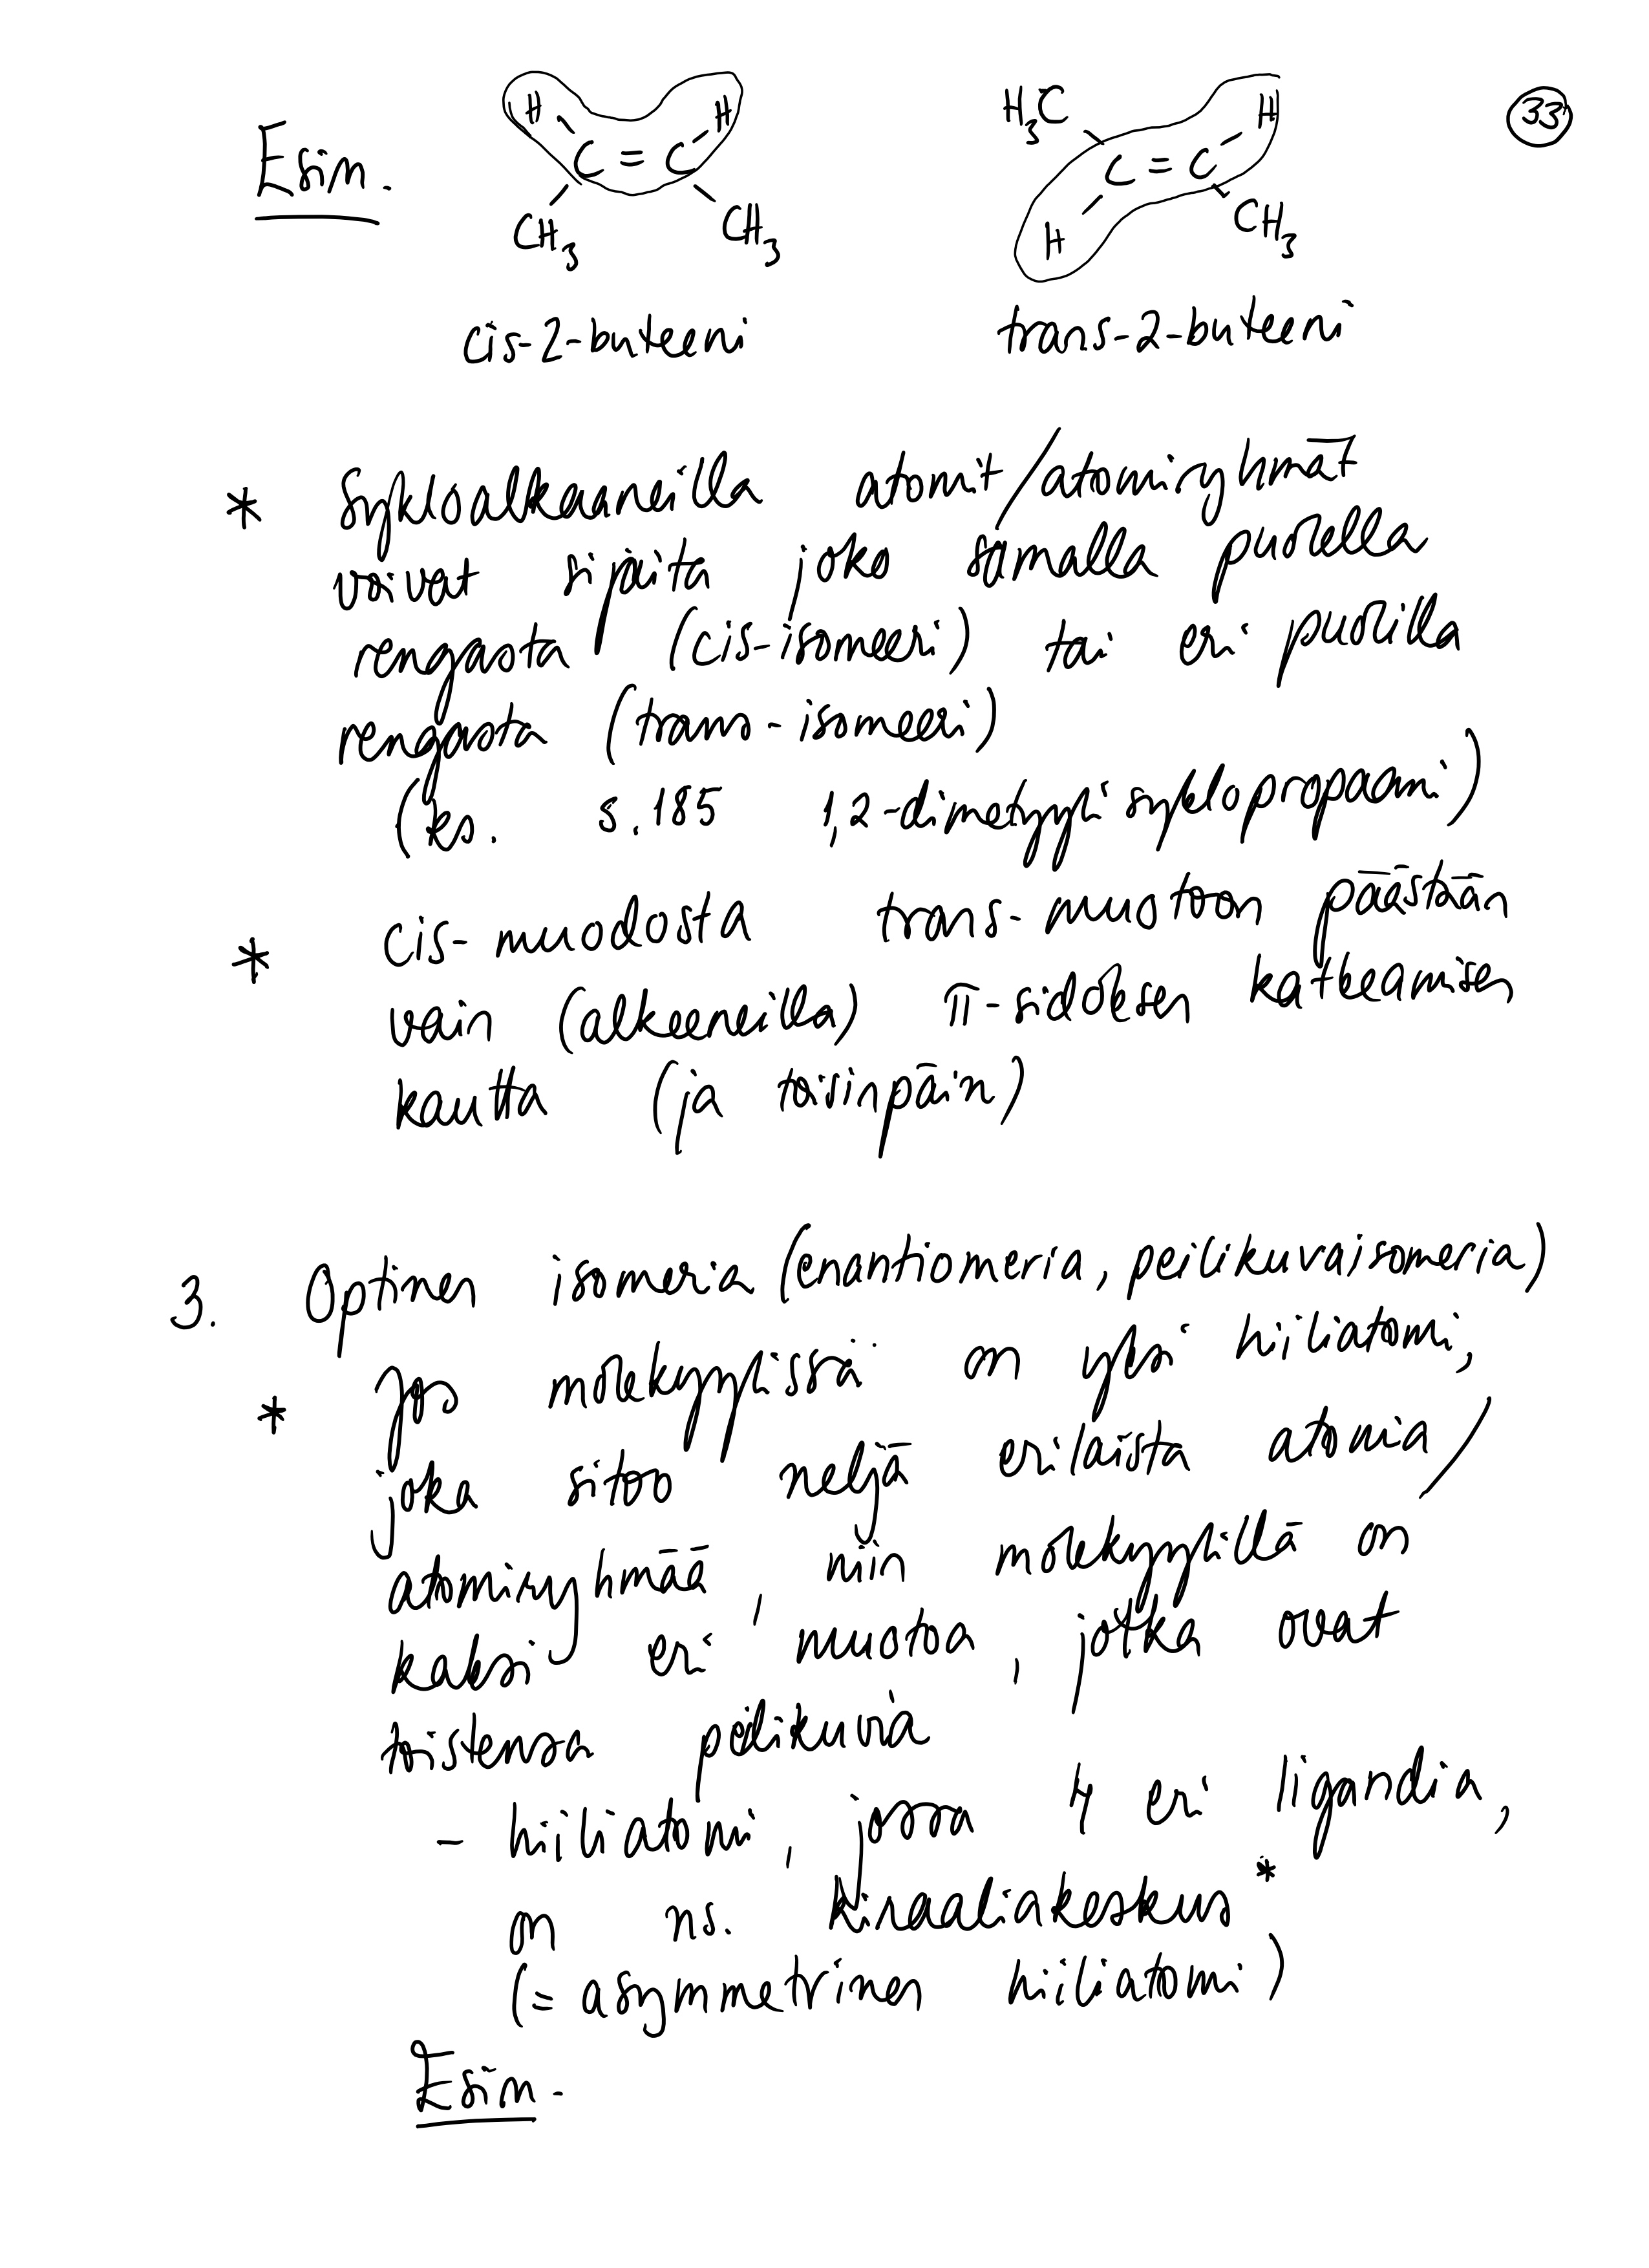 33
Esim.
H H
C = C
CH3 CH3
cis-2-buteeni
H3C H
C = C
H CH3
trans-2-buteeni
* Sykloalkaaneilla atomit/atomiryhmät
voivat sijaita joko samalla puolella
rengasta (cis-isomeeri) tai eri puolilla
rengasta (trans-isomeeri)
(ks. s.185 1,2-dimetyylisyklopropaani)
* cis-muodosta trans-muotoon päästään
vain (alkeeneilla) π-sidoksen katkeamisen
kautta (ja toisinpäin)
3. Optinen isomeria (enantiomeria, peilikuvaisomeria)
* Jos molekyylissä on yksi hiiliatomi,
joka sitoo neljä erilaista atomia/
atomiryhmää, niin molekyylillä on
kaksi eri muotoa, jotka ovat
toistensa peilikuvia
- hiiliatomi, jossa 4 eri ligandia,
on ns. kiraaliakeskus*
(= asymmetrinen hiiliatomi)
Esim.